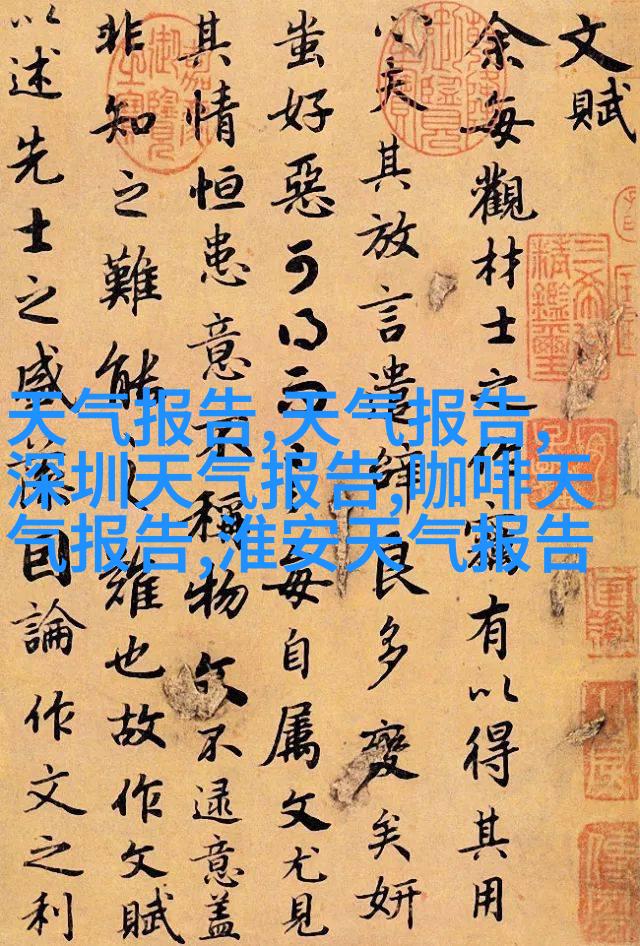 文賦
余每觀材士之作竊有以得其用
心夫其放言遣辭良多變矣妍
蚩好惡可得而言每自屬文尤見
其情恒患意不稱物文不逮意蓋
非知之難能之難也故作文賦
以述先士之盛藻因論作文之利
天气报告,天气报告,
深圳天气报告,咖啡天
气报告,淮安天气报告
三希堂
精鑑璽